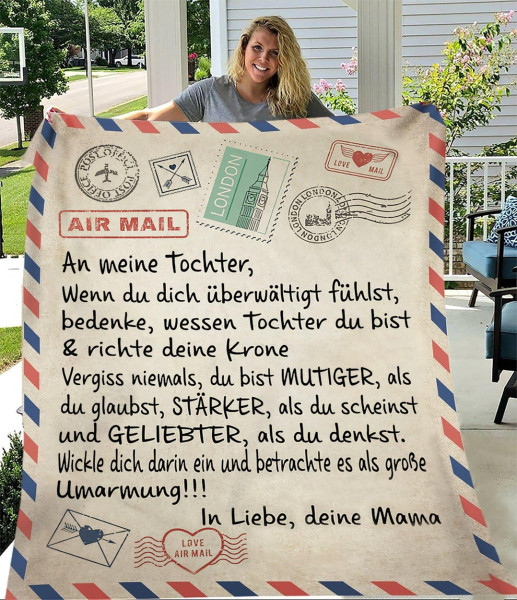 POST OFFICE
POST OFFICE
LONDON
LOVE MAIL
LONDON LONDON LONDON
LONDON
AIR MAIL
An meine Tochter,
Wenn du dich überwältigt fühlst,
bedenke, wessen Tochter du bist
& richte deine Krone
Vergiss niemals, du bist MUTIGER, als
du glaubst, STÄRKER, als du scheinst
und GELIEBTER, als du denkst.
Wickle dich darin ein und betrachte es als große
Umarmung!!!
In Liebe, deine Mama
LOVE
AIR MAIL